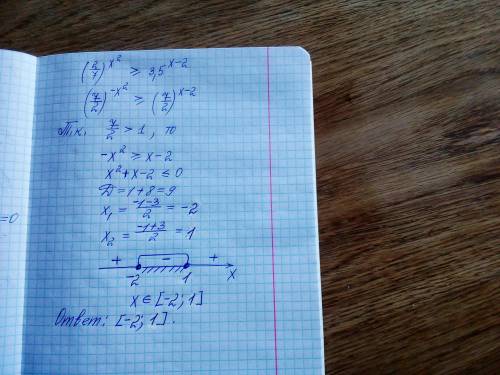 (2/7)^x² ≥ 3,5^x-2
(7/2)^-x² ≥ (7/2)^x-2
Т.к. 7/2 > 1, то
-x² ≥ x-2
x²+x-2 ≤ 0
Д=1+8=9
x₁ = (-1-3)/2 = -2
=0
x₂ = (-1+3)/2 = 1
+ - +
-2 1 x
x ∈ [-2; 1]
Ответ: [-2; 1].